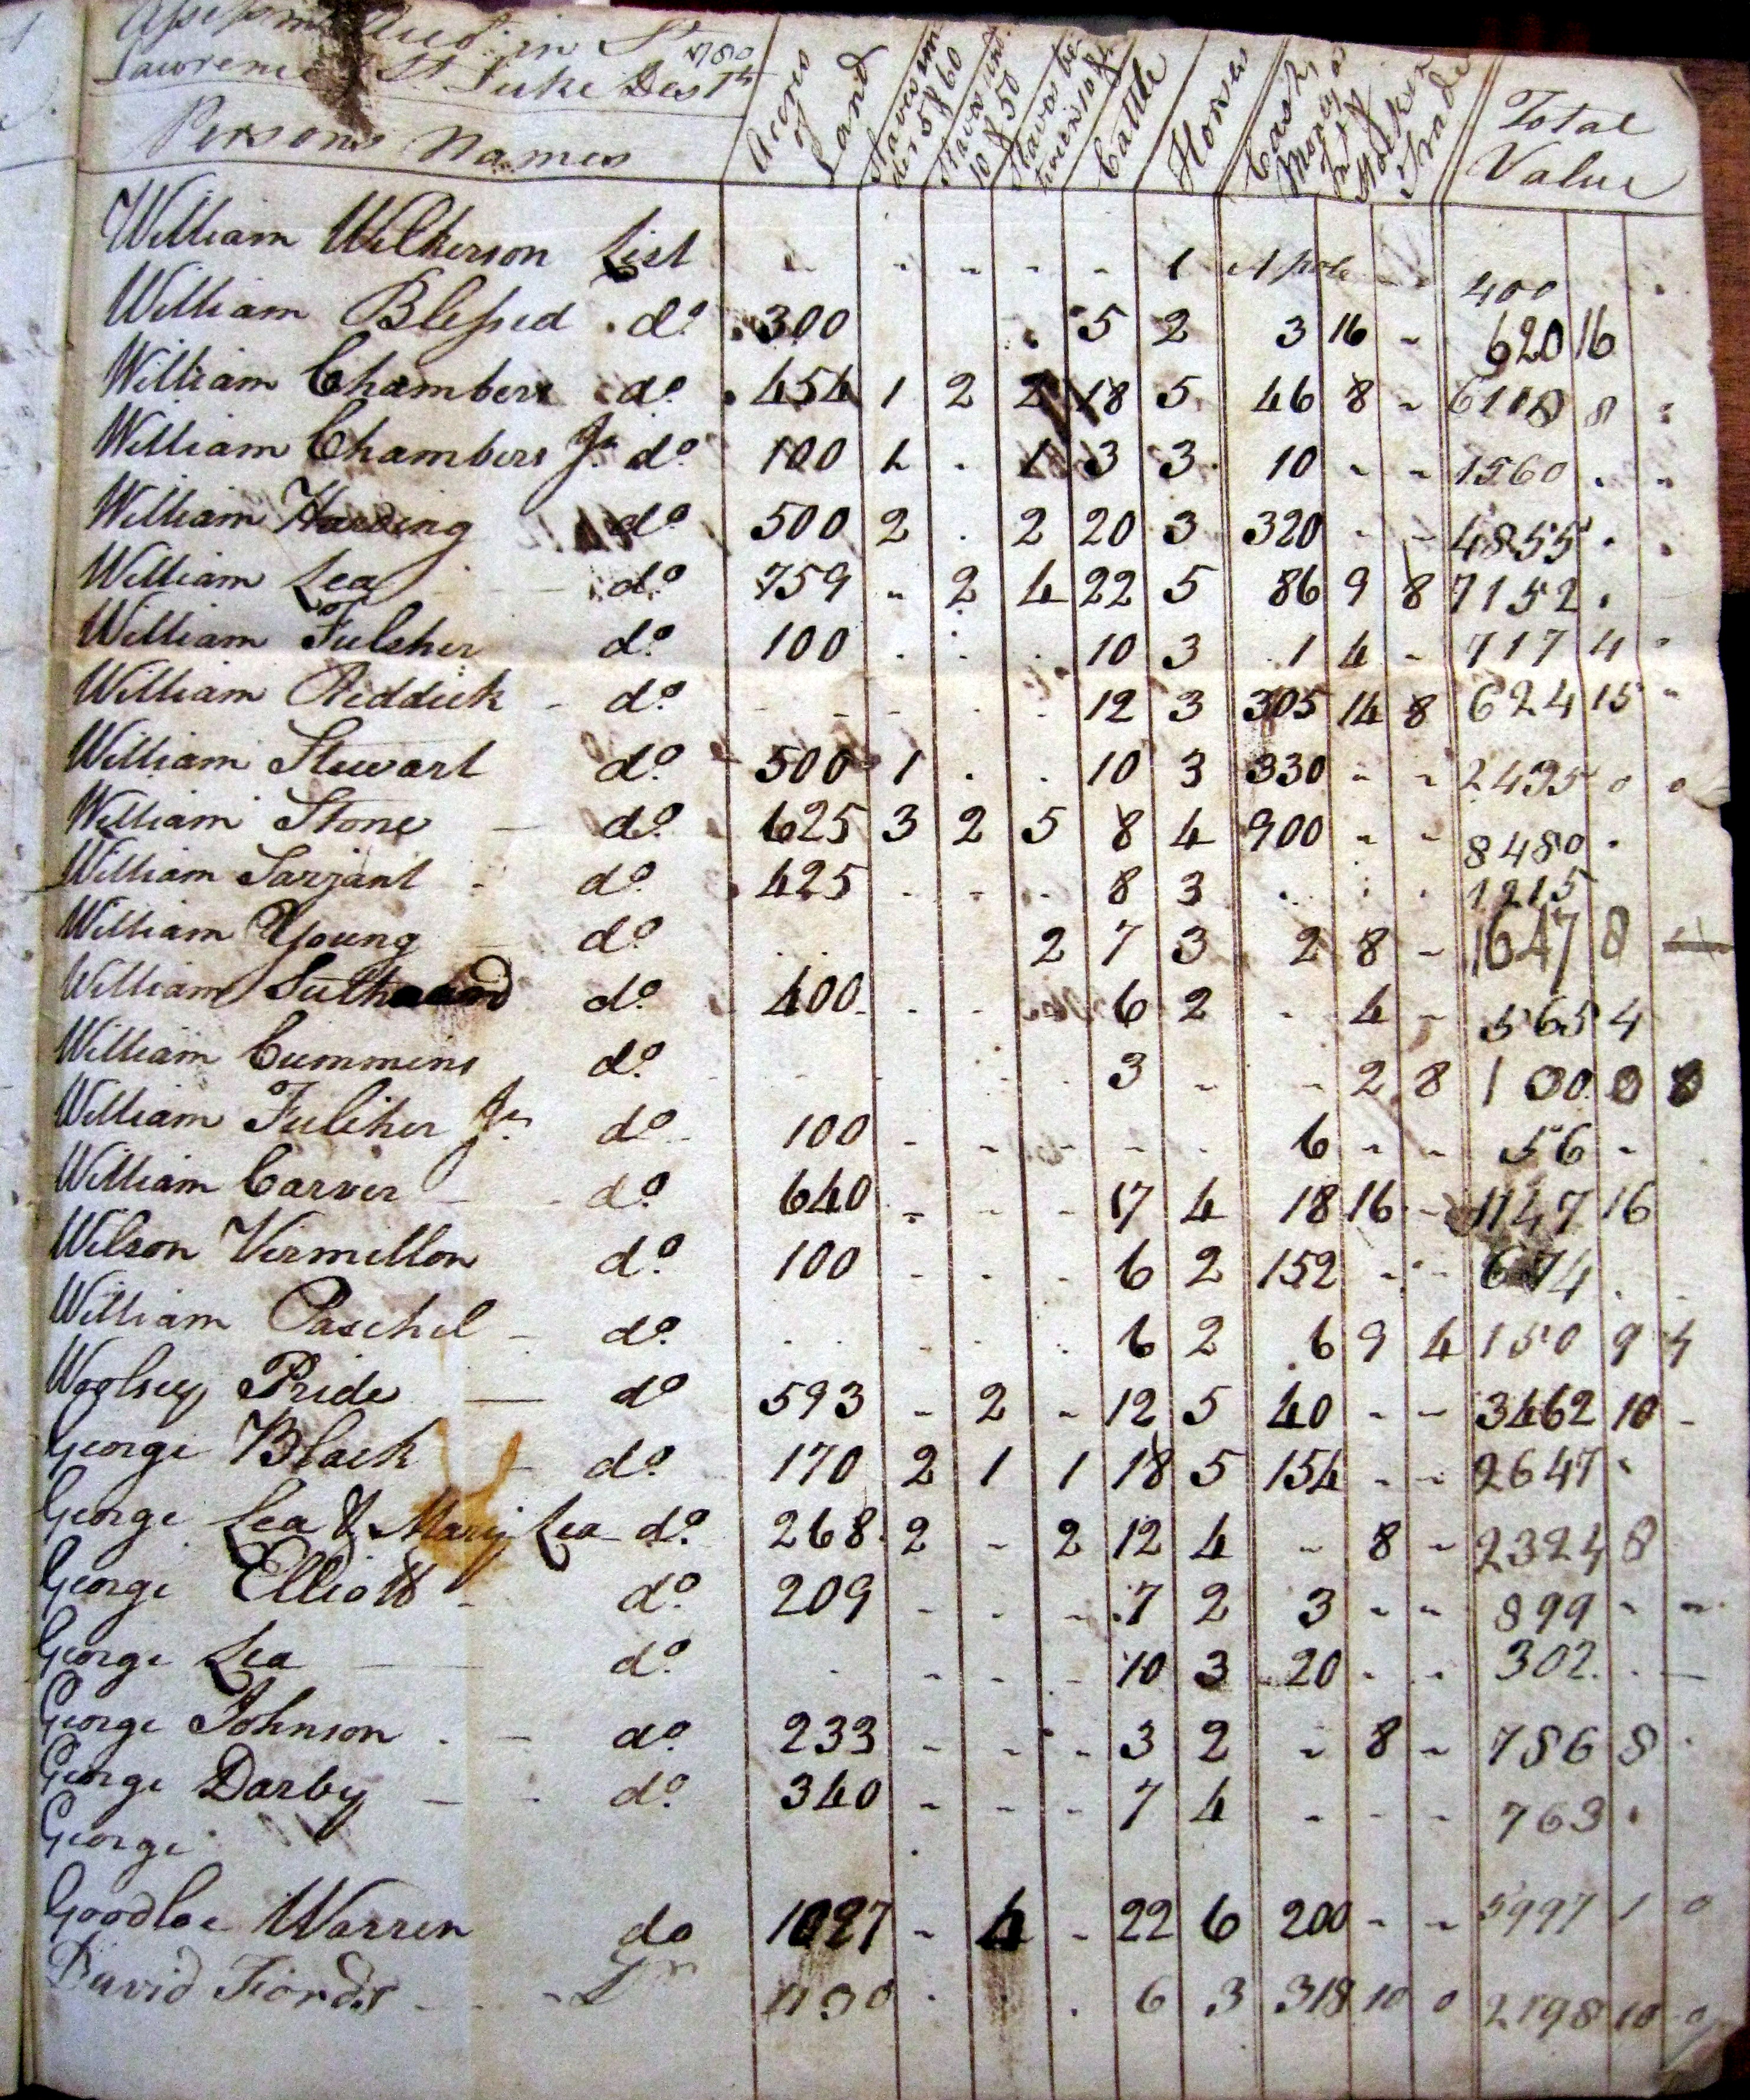 in St 1780
Lawrence & St. Luke Dist
Persons Names
Acres of Land
Cattle
Horses
Total Value
William Wilkerson List - - - - - 1 A pole - - 400
William Blessed do 300 5 2 3 16 - 620 16
William Chambers do 454 1 2 2 18 5 46 8 - 6108 8
William Chambers Jr do 100 1 . 1 3 3 10 - - 1560 . -
William Harding do 500 2 . 2 20 3 320 - - 4855 . .
William Lea do 759 - 2 4 22 5 86 9 8 7152 .
William Fulsher do 100 . . . 10 3 1 4 - 717 4
William Riddick - do - - - - 12 3 305 14 8 624 15 -
William Stewart do 500 1 . . 10 3 330 - - 2495 0 0
William Stone - do 625 3 2 5 8 4 900 - - 8480 .
William Sarjant - do 425 - - - 8 3 . . . 1215
William Young - do 2 7 3 2 8 - 1647 8 -
William do 400 - - - 6 2 - 4 - 565 4
William Cummins do - - - - 3 - - 2 8 1 00 0 8
William Fulcher Jr do 100 - - - - - 6 - - 56 -
William Carver - do 640 - - - 17 4 18 16 - 1147 16
Wilson Vermillon do 100 - - - 6 2 152 - - 674 . -
William Paschel - do . - - - 6 2 6 9 4 150 9 4
Woolsey Pride - do 593 - 2 - 12 5 40 - - 3462 10 -
George Black - do 170 2 1 1 18 5 154 - - 2647 -
George Lea & Mary Lea do 268 2 - 2 12 4 - 8 - 2324 8
George Elliott - do 209 - - - 7 2 3 - - 899 - -
George Lea - do . - - - 10 3 20 - - 302 . -
George Johnson . - do 233 - - - 3 2 - 8 - 786 8
George Darby - - do 340 - - - 7 4 - - - 763 .
George
Goodloe Warren do 1027 - 4 - 22 6 200 - - 5997 1 0
David 6 3 318 10 0 2198 10 0